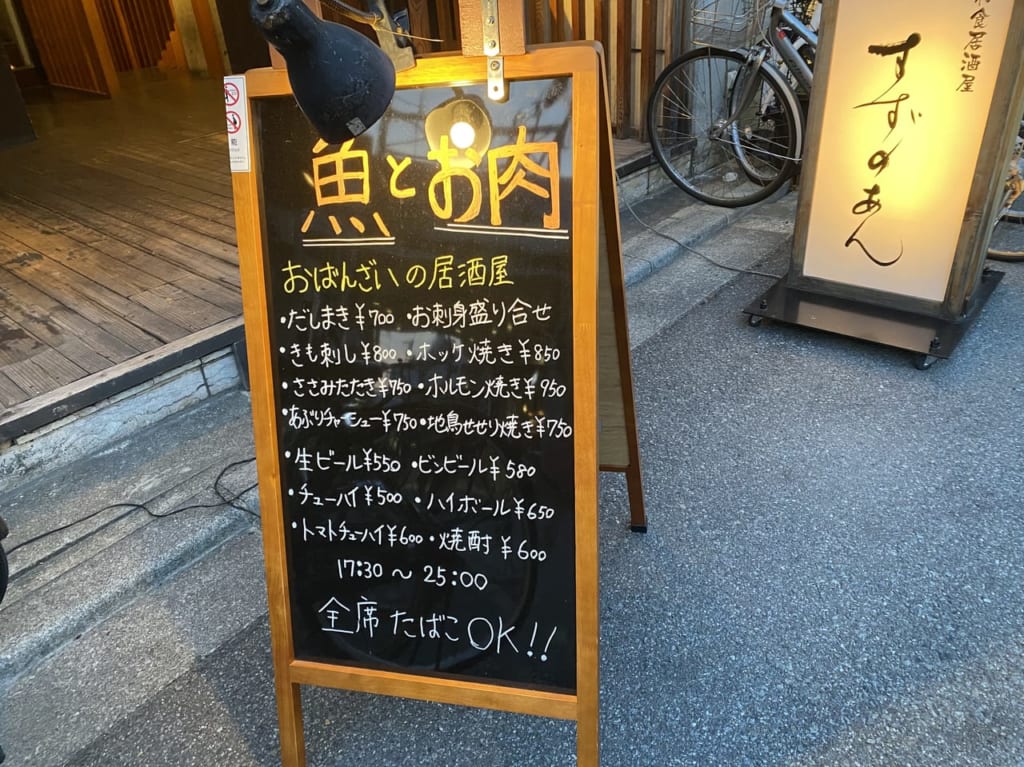 魚とお肉
おばんざいの居酒屋
・だしまき¥700 ・お刺身盛り合せ
・きも刺し¥800 ・ホッケ焼き¥850
・ささみたたき¥750 ・ホルモン焼き¥950
・あぶりチャーシュー¥750 ・地鳥せせり焼き¥750
・生ビール¥550 ・ビンビール¥580
・チューハイ¥500 ・ハイボール¥650
・トマトチューハイ¥600 ・焼酎 ¥600
17:30 〜 25:00
全席 たばこ OK!!
食居酒屋
すずのあん